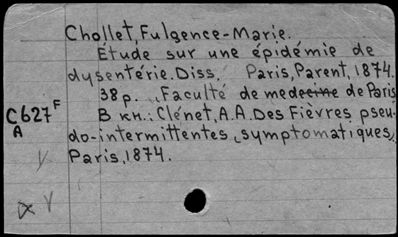 Chollet, Fulgence-Marie.
Étude sur une épidémie de
dysentérie. Diss. Paris, Parent, 1874.
38 p. „Faculté de medecine de Paris
C627F
A
В кн.: Clénet, A.A. Des Fièvres pseu-
do-intermittentes symptomatiques,
Paris, 1874.